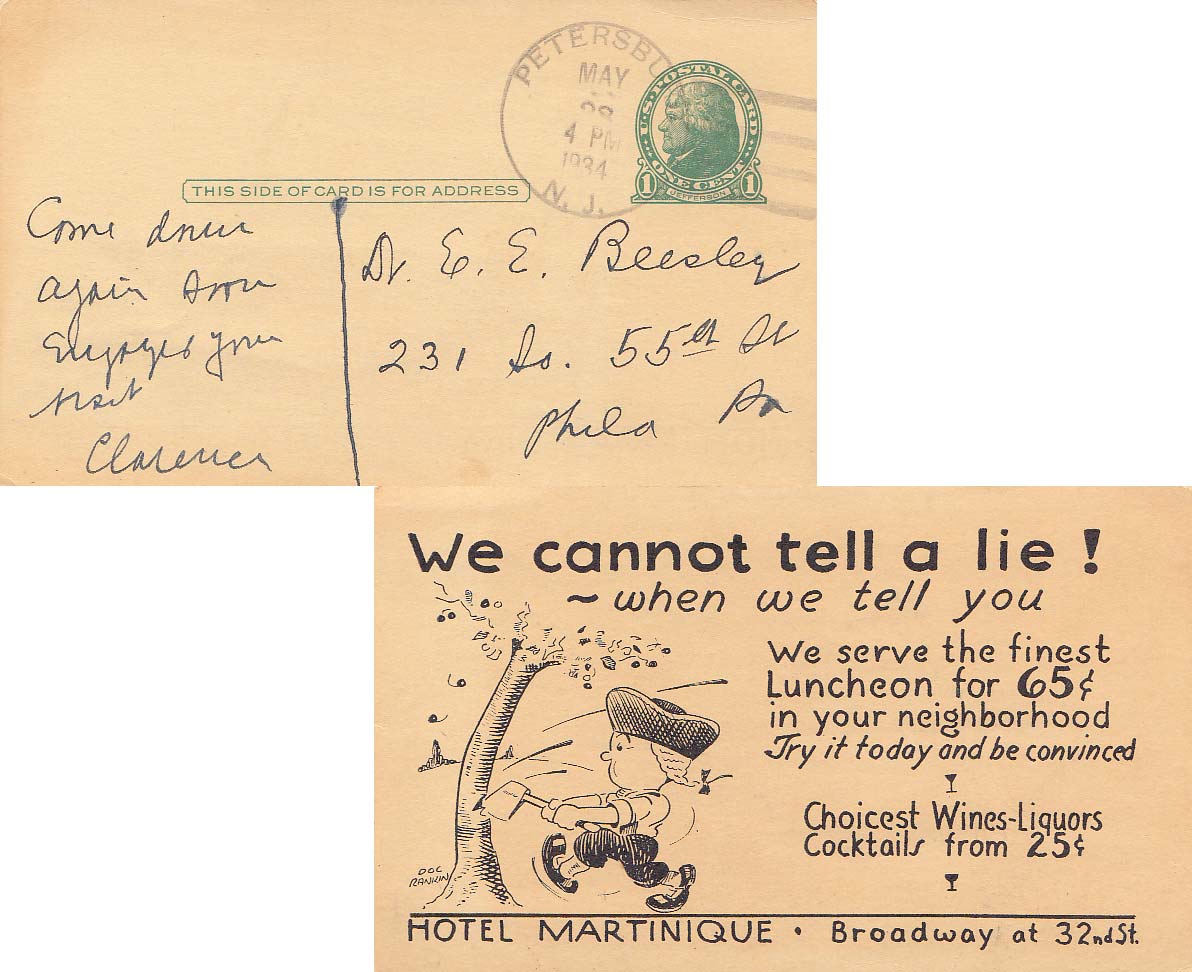 PETERSBU
MAY
4 PM
1934
N. J.
U.S. POSTAL CARD
ONE CENT
1 JEFFERSON 1
THIS SIDE OF CARD IS FOR ADDRESS
Come down
again soon
Enjoyed your
visit
Clarence
Dr. E. E. Beesley
231 So. 55th St
Phila Pa
We cannot tell a lie!
~ when we tell you
We serve the finest
Luncheon for 65¢
in your neighborhood
Try it today and be convinced
Choicest Wines-Liquors
Cocktails from 25¢
DOC
RANKIN
HOTEL MARTINIQUE • Broadway at 32nd St.